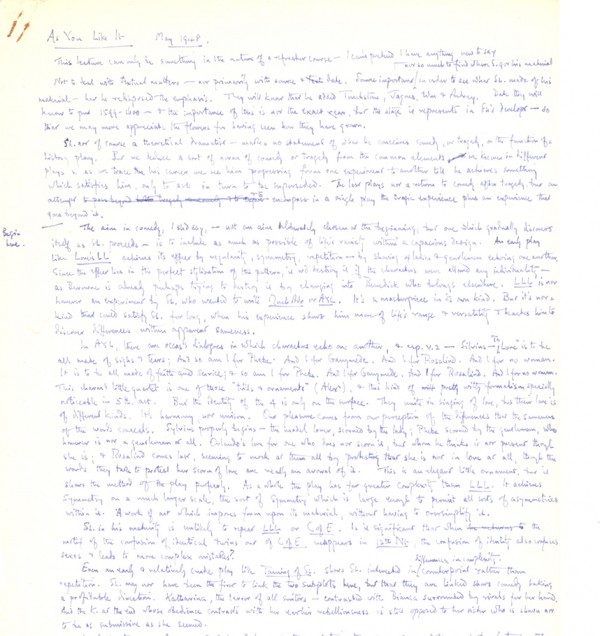 As You Like It May 1948.
This lecture can only be something in the nature of a refresher course — I can't pretend I have anything new to say
Not to deal with textual matters — nor primarily with source & date. Sources important in order to see what Sh. made of his
material — how he reshaped the emphasis. They will know that he added Touchstone, Jaques, Wm & Audrey. Date they will
know to be 1599-1600 — & the importance of this is not the exact year, but the stage it represents in Sh's development — so
that we may more appreciate the flowers for having seen how they have grown.
Sh. not of course a theoretical dramatist — makes no statement of what he conceives comedy, or tragedy, or the function of a
history play. But we deduce a sort of norm of comedy or tragedy from the common elements we discern in different
plays & as we trace his course we see him progressing from one experiment to another till he achieves something
which satisfies him, only to be in turn to be superseded. The last plays are a return to comedy after tragedy, but an
attempt to encompass in a single play the tragic experience plus an experience that
goes beyond it.
Begin here.
The aim in comedy, I should say, — not an aim deliberately chosen at the beginning, but one which gradually discovers
itself as Sh. proceeds — is to include as much as possible of life's variety within a capacious design. An early play
like Love's LL achieves its effect by regularity, symmetry, repetition — by having a lady & gentleman echoing one another.
Since the effect lies in the perfect stylization of the pattern, it would destroy it if the characters were allowed any individuality —
as Berowne is already perhaps trying to destroy it by changing into Benedick who belongs elsewhere. LLL is not
however an experiment by Sh. who wanted to write Much Ado or AYL. It's a masterpiece in its own kind. But it's not a
kind that could satisfy Sh. for long, when his experience showed him more of life's range & versatility & leads him to
discover differences within apparent sameness.
In AYL, there are occas'l dialogues in which characters echo one another, e.g. V.2 — Silvius — To love is to be
all made of sighs & tears; And so am I for Phebe. And I for Ganymede. And I for Rosalind. And I for no woman.
It is to be all made of faith and service; & so am I for Phebe. And I for Ganymede. And I for Rosalind. And I for no woman.
This charming little quartet is one of those "trills & ornaments", & this kind of pretty witty formalism is specially
noticeable in Sh's art. But the identity of the 4 is only on the surface. They unite in singing of love, but their love is
of different kinds. It's harmony, not unison. Our pleasure comes from our perception of the differences that the sameness
of the words conceals. Sylvius properly begins — the model lover, scorned by the lady; Phebe scorned by the gentleman, who
however is not a gentleman at all. Orlando's love for one who has not scorn'd, but whom he thinks is not present though
she is; & Rosalind comes last, seeming to mock at them all by protesting that she is not in love at all, though the
words they take to portend her scorn of love are really an avowal of it. This is an elegant little ornament, but it
shows the method of the play properly. As a whole the play has far greater complexity than LLL. It achieves
symmetry on a much larger scale, the sort of symmetry which is large enough to permit all sorts of asymmetries
within it. A work of art which imposes form upon its material, without having to oversimplify it.
Sh. in his maturity is unlikely to repeat LLL or C of E. It is significant that when the
motif of the confusion of identical twins out of C of E reappears in 12th Nt, the confusion of identity also confuses
sexes & leads to more complex mistakes.
Even an early & relatively simple play like Taming of Sh. shows Sh. interested in counterpoint rather than
repetition. Sh. may not have been the first to link the two subplots here, but that they are linked shows comedy taking
a profitable direction. Katharina, the terror of all suitors — contrasted with Bianca surrounded by rivals for her hand.
And the K. at the end whose obedience contrasts with her earlier rebelliousness is still opposed to her sister who is shown not
to be as submissive as she seemed.